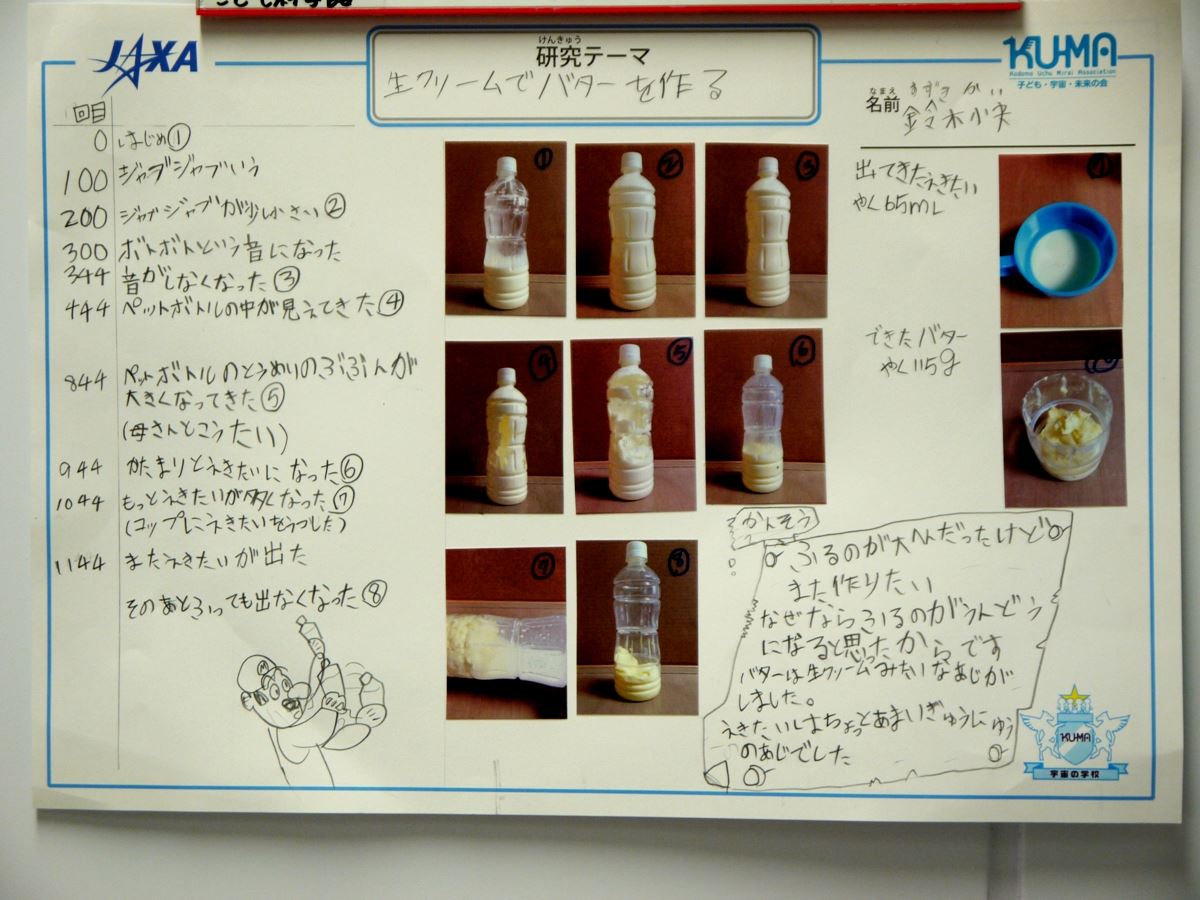 JAXA
けんきゅう
研究テーマ
生クリームでバターを作る
KU-MA
Kodomo Uchu Mirai Association
子ども・宇宙・未来の会
なまえ
名前
すずき かい
鈴木
回目
0 はじめ①
100 ジャブジャブいう
200 ジャブジャブが少し小さい②
300 ボトボトという音になった
344 音がしなくなった③
444 ペットボトルの中が見えてきた④
844 ペットボトルのとうめいのぶぶんが
大きくなってきた⑤
(母さんとこうたい)
944 かたまりとえきたいになった⑥
1044 もっとえきたいが多くなった⑦
(コップにえきたいをうつした)
1144 またえきたいが出た
そのあとふっても出なくなった⑧
M
①
②
③
④
⑤
⑥
⑦
⑧
出てきたえきたい
やく65mL
できたバター
やく115g
かんそう
ふるのが大へんだったけど
また作りたい
なぜならふるのがうんどう
になると思ったからです
バターは生クリームみたいなあじが
しました。
えきたいはちょっとあまいぎゅうにゅう
のあじでした
KU-MA
宇宙の学校